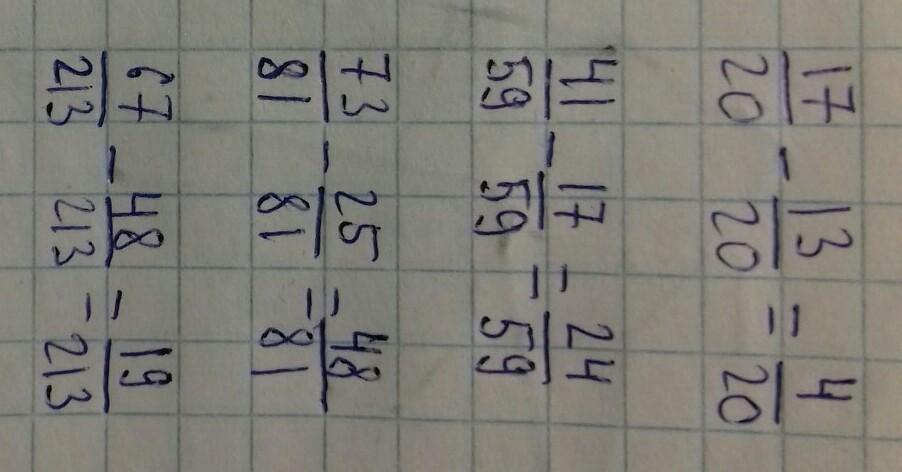 17/20 - 13/20 = 4/20
41/59 - 17/59 = 24/59
73/81 - 25/81 = 48/81
67/213 - 48/213 = 19/213